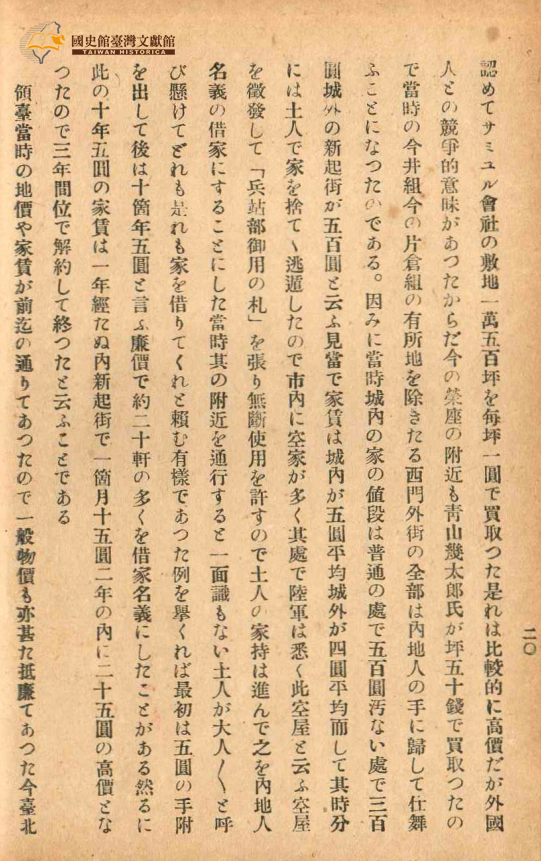 國史館臺灣文獻館
TAIWAN HISTORICA
二〇
認めてサミユル會社の敷地一萬五百坪を每坪一圓で買取つた是れは比較的に高價だが外國
人との競爭的意味があつたからだ今の榮座の附近も靑山幾太郞氏が坪五十錢で買取つたの
で當時の今井組今の片倉組の有所地を除きたる西門外街の全部は內地人の手に歸して仕舞
ふことになつたのである。因みに當時城內の家の値段は普通の處で五百圓汚ない處で三百
圓城外の新起街が五百圓と云ふ見當で家賃は城內が五圓平均城外が四圓平均而して其時分
には土人で家を捨てゝ逃遁したので市內に空家が多く其處で陸軍は悉く此空屋と云ふ空屋
を徵發して「兵站部御用の札」を張り無斷使用を許すので土人の家持は進んで之を內地人
名義の借家にすることにした當時其の附近を通行すると一面識もない土人が大人〱と呼
び懸けてどれも是れも家を借りてくれと賴む有樣であつた例を擧くれば最初は五圓の手附
を出して後は十箇年五圓と言ふ廉價で約二十軒の多くを借家名義にしたことがある然るに
此の十年五圓の家賃は一年經たぬ內新起街で一箇月十五圓二年の內に二十五圓の高價とな
つたので三年間位で解約して終つたと云ふことである
領臺當時の地價や家賃が前迄の通りてあつたので一般物價も亦甚た抵廉てあつた今臺北